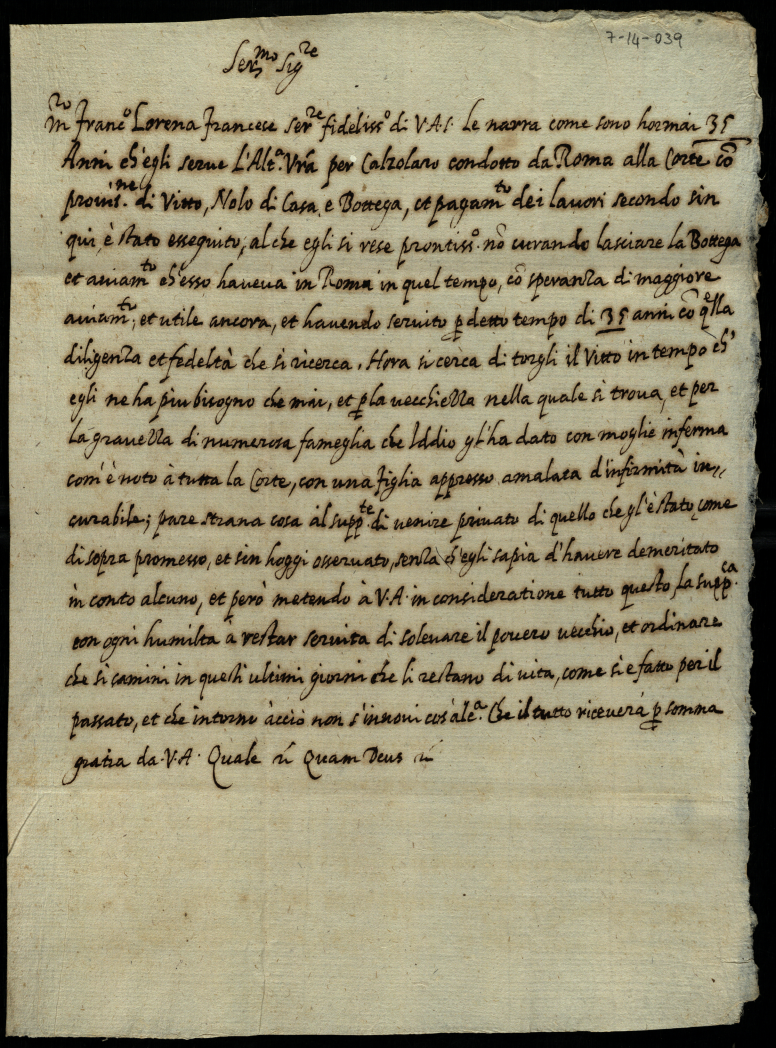 7-14-039
Ser.mo Sig.re
M.ro Franc.o Lorena Francese ser.re fideliss.o di V.A.S. le narra come sono hormai 35
Anni ch'egli serve l'Alt.a Vrã per Calzolaro condotto da Roma alla Corte cõ
provis.ne di Vitto, Nolo di Casa e Bottega, et pagam.to dei lavori secondo sin
qui è stato esseguito, al che egli si rese prontiss.o nõ curando lasciare la Bottega
et aviam.to ch'esso haveva in Roma in quel tempo, cõ speranza di maggiore
aviam.to, et utile ancora, et havendo servito p detto tempo di 35 anni cõ q.ella
diligenza et fedeltà che si ricerca. Hora si cerca di torgli il Vitto in tempo ch'
egli ne ha piu bisogno che mai, et p la vecchiezza nella quale si trova, et per
la gravezza di numerosa fameglia che Iddio gl'ha dato con moglie inferma
com'è noto à tutta la Corte, con una figlia appresso amalata d'infirmità in//
curabile; pare strana cosa al supp.te di venire privato di quello che gl'è stato come
di sopra promesso, et sin hoggi osservato, senza ch'egli sapia d'havere demeritato
in conto alcuno, et però metendo à V.A. in consideratione tutto questo, la supp.ca
con ogni humiltà à restar servita di solevare il povero vecchio, et ordinare
che si camini in questi ultimi giorni che li restano di vita, come si è fatto per il
passato, et che intorno àcciò non s'innovi cos'alc.a Che il tutto riceverà p somma
gratia da V.A. Quale Quam Deus